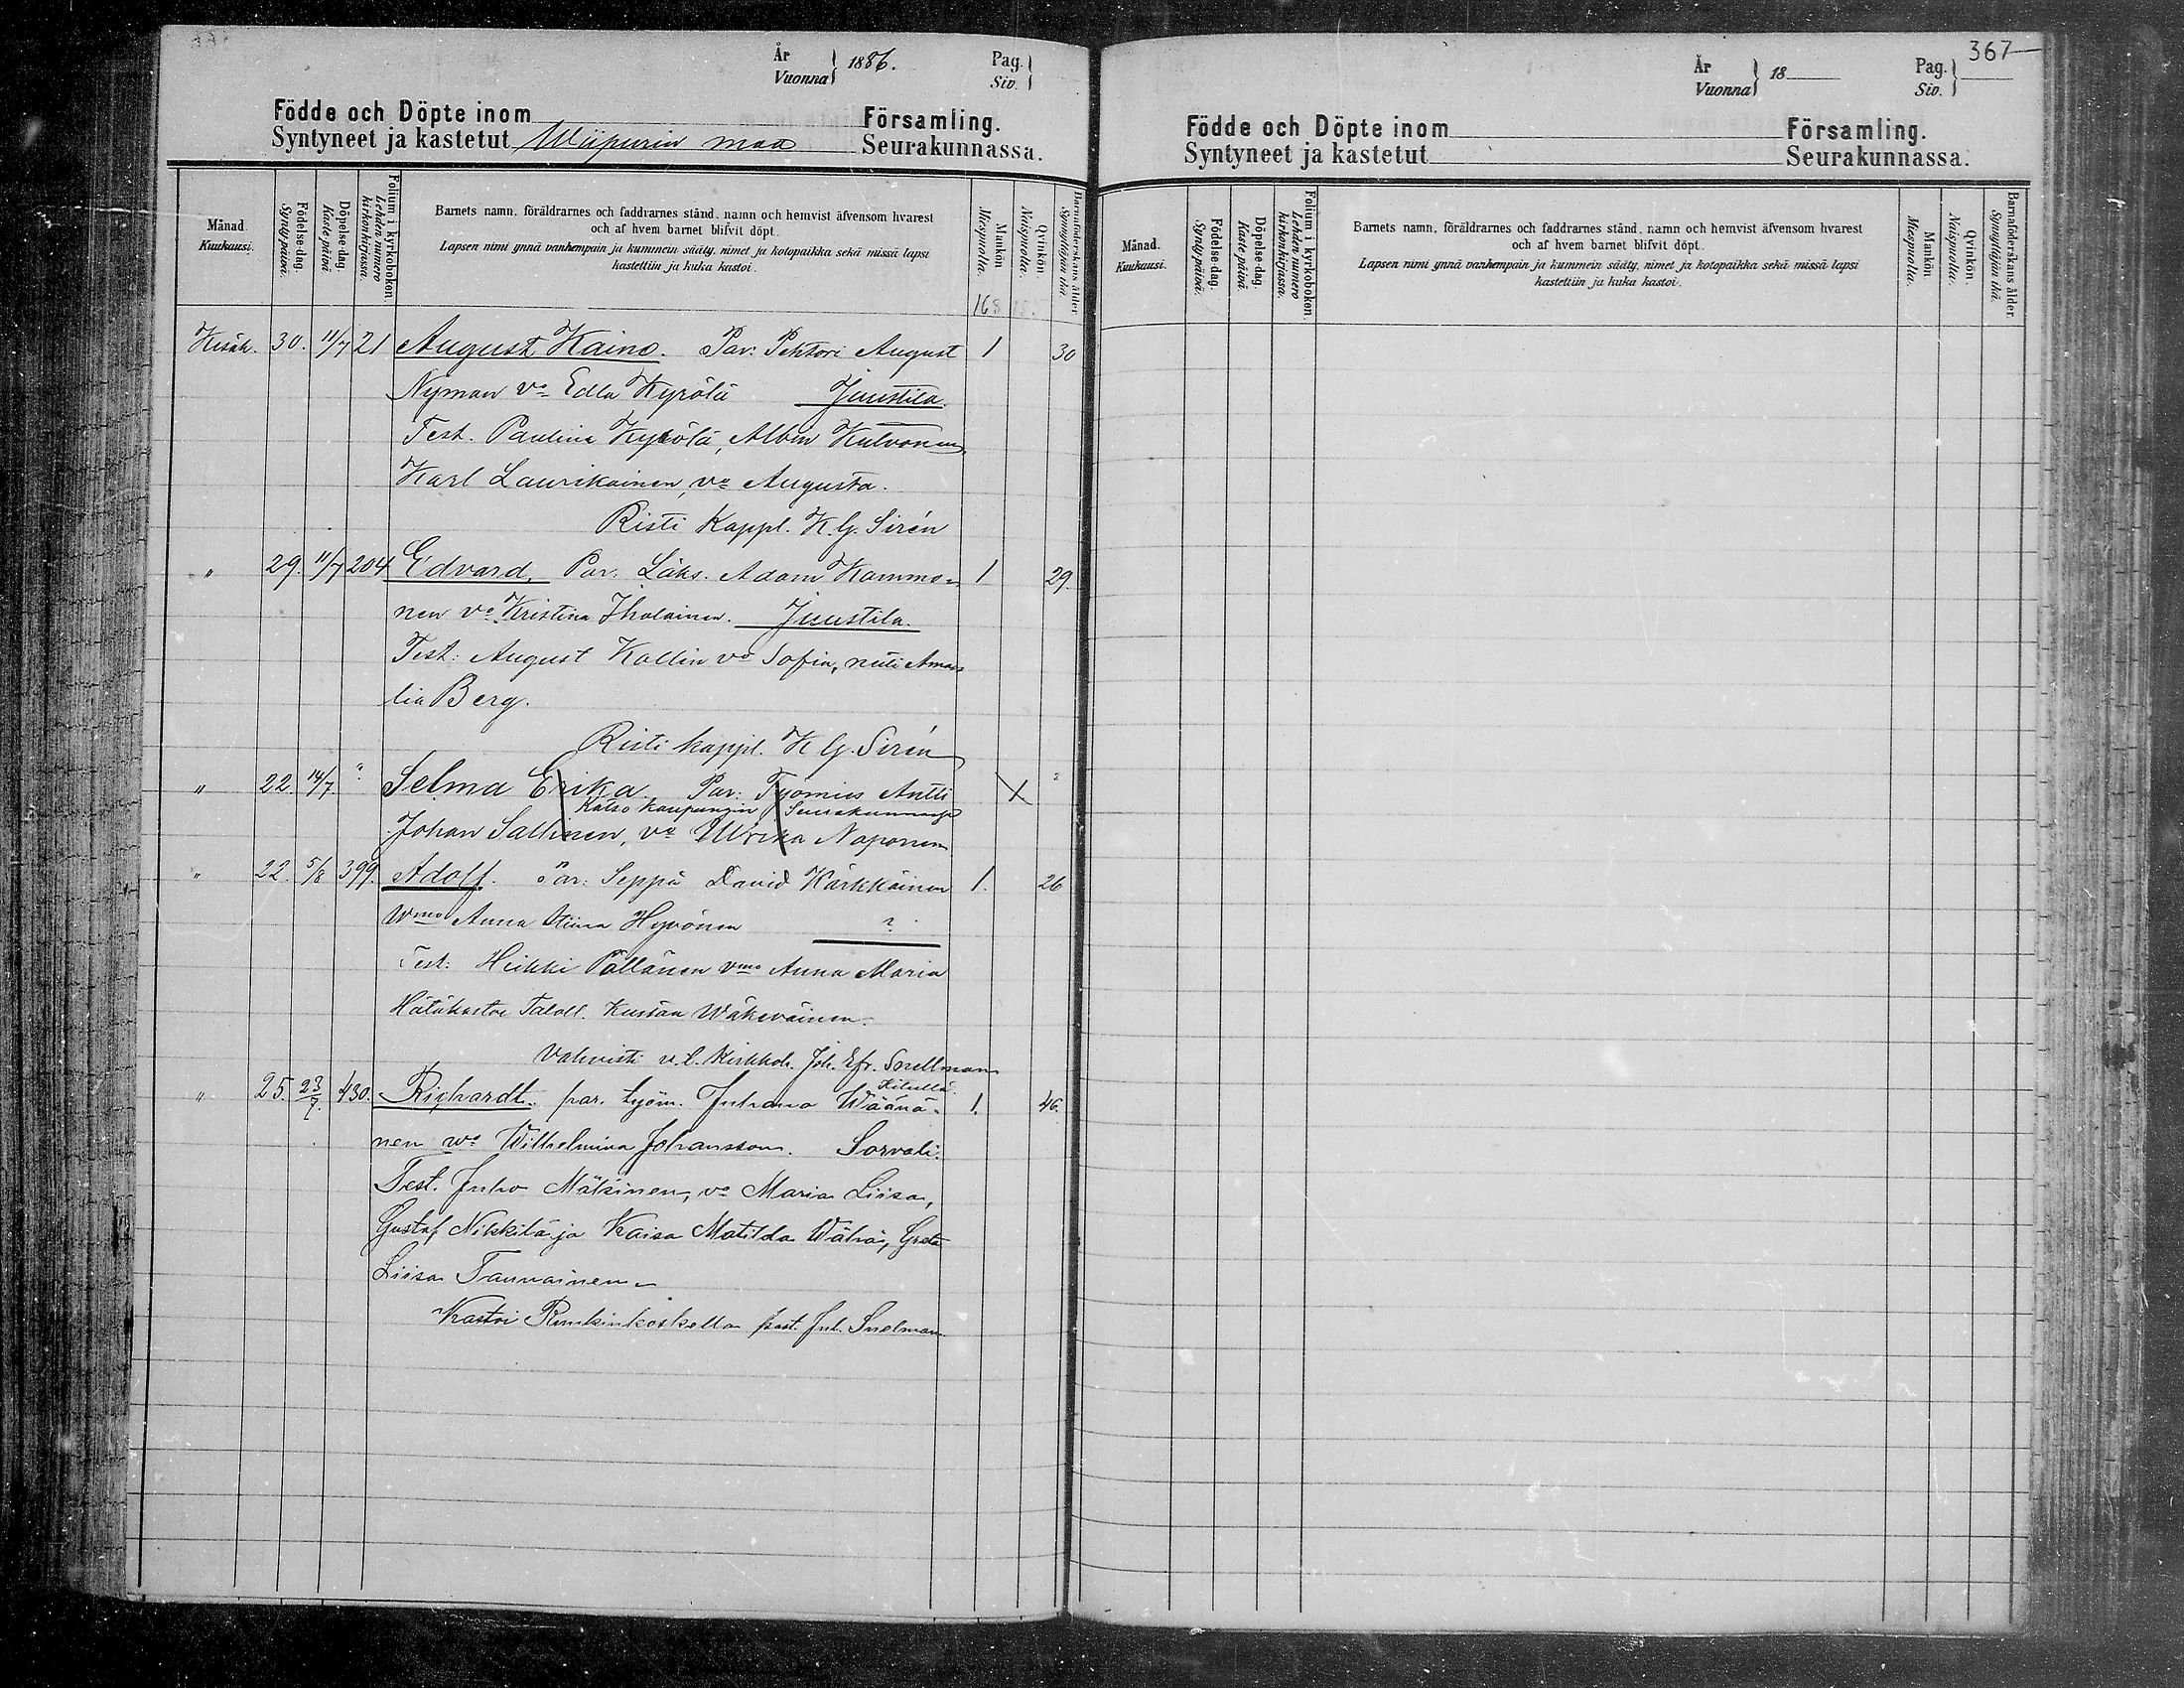 År Vuonna 1886. Pag. Siv.
Födde och Döpte inom Församling.
Syntyneet ja kastetut Wiipurin maa Seurakunnassa.
Månad. Kuukausi.
Födelse-dag. Syntypäivä.
Döpelse-dag. Kaste päivä
Folium i kyrkobokon. Lehden numero kirkonkirjassa.
Barnets namn, föräldrarnes och faddrarnes stånd, namn och hemvist äfvensom hvarest
och af hvem barnet blifvit döpt.
Lapsen nimi ynnä vanhempain ja kummein sääty, nimet ja kotopaikka sekä missä lapsi
kastettiin ja kuka kastoi.
Mankön Miespuolia.
Qvinkön. Naispuolia.
Barnaföderskans ålder. Synnyttäjän ikä
168
Kesäk. 30. 11/7 21 August Kaino. Par: Pehtori August 1 30
Nyman vo Edla Kyrölä Juustila.
Test. Paulina Kyrölä, Albin Kulvonen
Karl Laurikainen, vo Augusta.
Risti Kappl. K. G. Sirén
" 29. 11/7 204 Edvard. Par. Läks. Adam Kammo- 1 29.
nen vo Kristina Iholainen. Juustila.
Test: August Kallin vo Sofia, neiti Ama-
lia Berg.
Risti kappl. K G. Sirén
" 22. 14/7. ? Selma Erika. Par: Työmies Antti
Katso kaupungin Seurakunnassa
Johan Sallinen, vo Ulrika Naponen
" 22. 5/8 399. Adolf. Par: Seppä David Kärkkäinen 1. 26
Wmo Anna Stiina Hyvönen ?
Test: Heikki Pällänen vmo Anna Maria
Hätäkastoi Taloll. Kustaa Wäkeväinen.
Vahvisti v.t. kirkkoh. Joh. Efr. Snellman
" 25. 23/7. 430. Richardt. par. työm. Juhana Wäänä- 1. 46.
nen wo Wilhelmina Johansson. Sorvali.
Test. Juho Mäkinen, vo Maria Liisa,
Gustaf Nikkilä ja Kaisa Matilda Wähä, Greta
Liisa Tanvainen
Kastoi past. Juh. Snelman
År Vuonna 18 Pag. Siv. 367
Födde och Döpte inom Församling.
Syntyneet ja kastetut Seurakunnassa.
Månad. Kuukausi.
Födelse-dag. Syntypäivä.
Döpelse-dag. Kaste päivä
Folium i kyrkobokon. Lehden numero kirkonkirjassa.
Barnets namn, föräldrarnes och faddrarnes stånd, namn och hemvist äfvensom hvarest
och af hvem barnet blifvit döpt.
Lapsen nimi ynnä vanhempain ja kummein sääty, nimet ja kotopaikka sekä missä lapsi
kastettiin ja kuka kastoi.
Mankön Miespuolia.
Qvinkön. Naispuolia.
Barnaföderskans ålder. Synnyttäjän ikä.